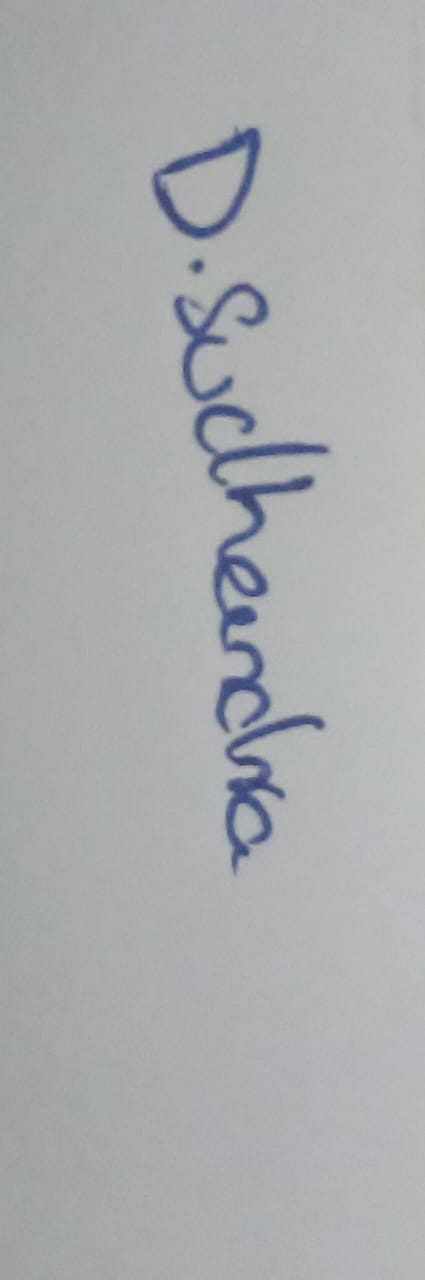 D. Sudheendra